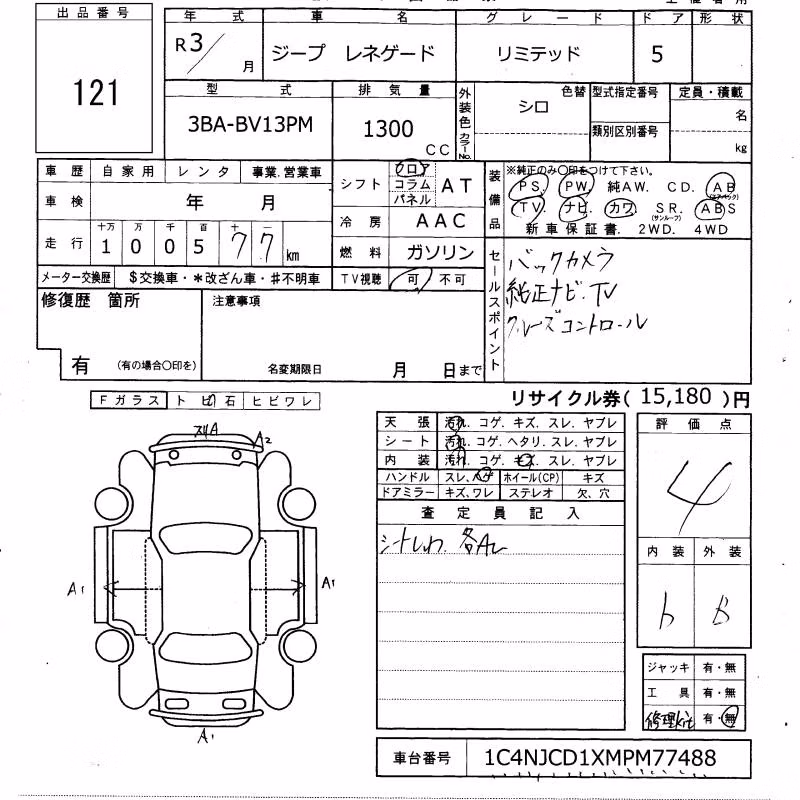 出品番号
121
年式 車名 グレード ドア 形状
R3/月 ジープ レネゲード リミテッド 5
型式 排気量 外装色 カラーNo. 色替 型式指定番号 定員・積載
3BA-BV13PM 1300 CC シロ 類別区別番号 名 kg
車歴 自家用 レンタ 事業.営業車
車検 年 月
走行 十万 万 千 百 十
1 0 0 5 7 7 km
メーター交換歴 $交換車・*改ざん車・#不明車
シフト フロア コラム パネル AT
冷房 AAC
燃料 ガソリン
TV視聴 可 不可
装備品 ※純正のみ○印をつけて下さい。
PS. PW. 純AW. CD. AB (エアバック)
TV. ナビ. カワ. SR. (サンルーフ) ABS
新車保証書. 2WD. 4WD
セールスポイント
バックカメラ
純正ナビ.TV
クルーズコントロール
修復歴 箇所 注意事項
有 (有の場合○印を) 名変期限日 月 日まで
リサイクル券( 15,180 )円
Fガラス トビ石 ヒビワレ
A2
A1
A1
A1
天張 汚れ. コゲ. キズ. スレ. ヤブレ
シート 汚れ. コゲ. ヘタリ. スレ. ヤブレ
内装 汚れ. コゲ. キズ. スレ. ヤブレ
ハンドル スレ、ハゲ ホイール(CP) キズ
ドアミラー キズ、ワレ ステレオ 欠、穴
査定員記入
評価点
4
内装 外装
ジャッキ 有・無
工具 有・無
修理kit 有・無
車台番号 1C4NJCD1XMPM77488